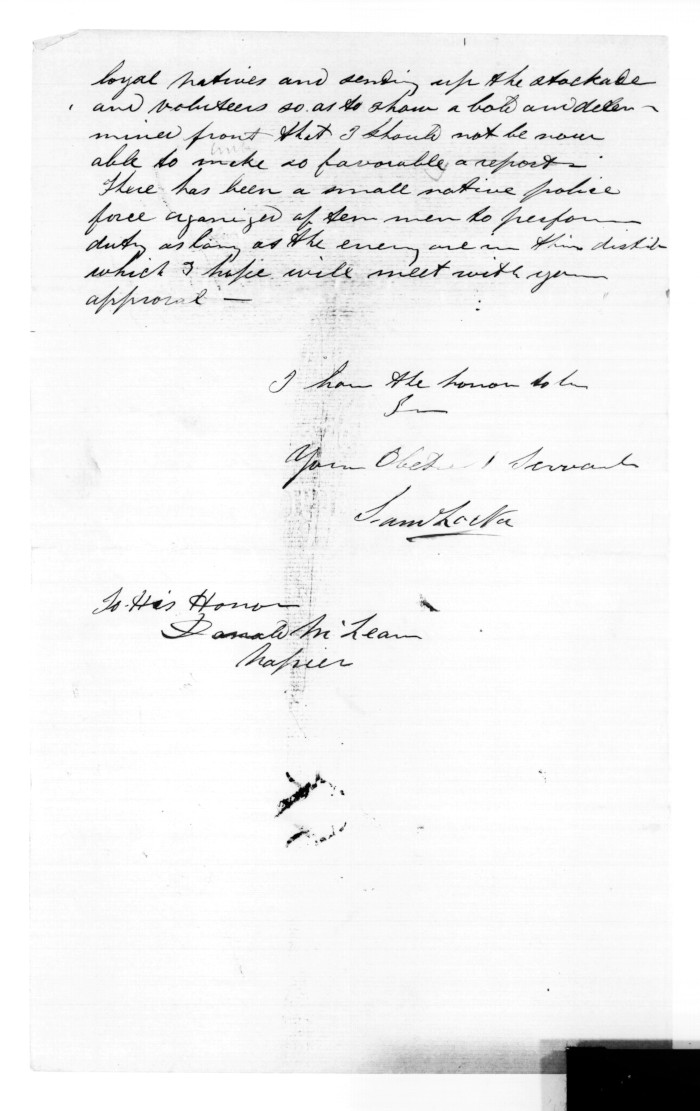 loyal natives and sending up the stockade
and volunteers so as to show a bold and deter-
mined front that I should not be now
able to make so favorable a report -
There has been a small native police
force organized of ten men to perform
duty as long as the enemy are in this district
which I hope will meet with your
approval -
I have the honor to be
Sir
Your Obedient Servant
Saml Locke
To His Honor
Donald McLean
Napier